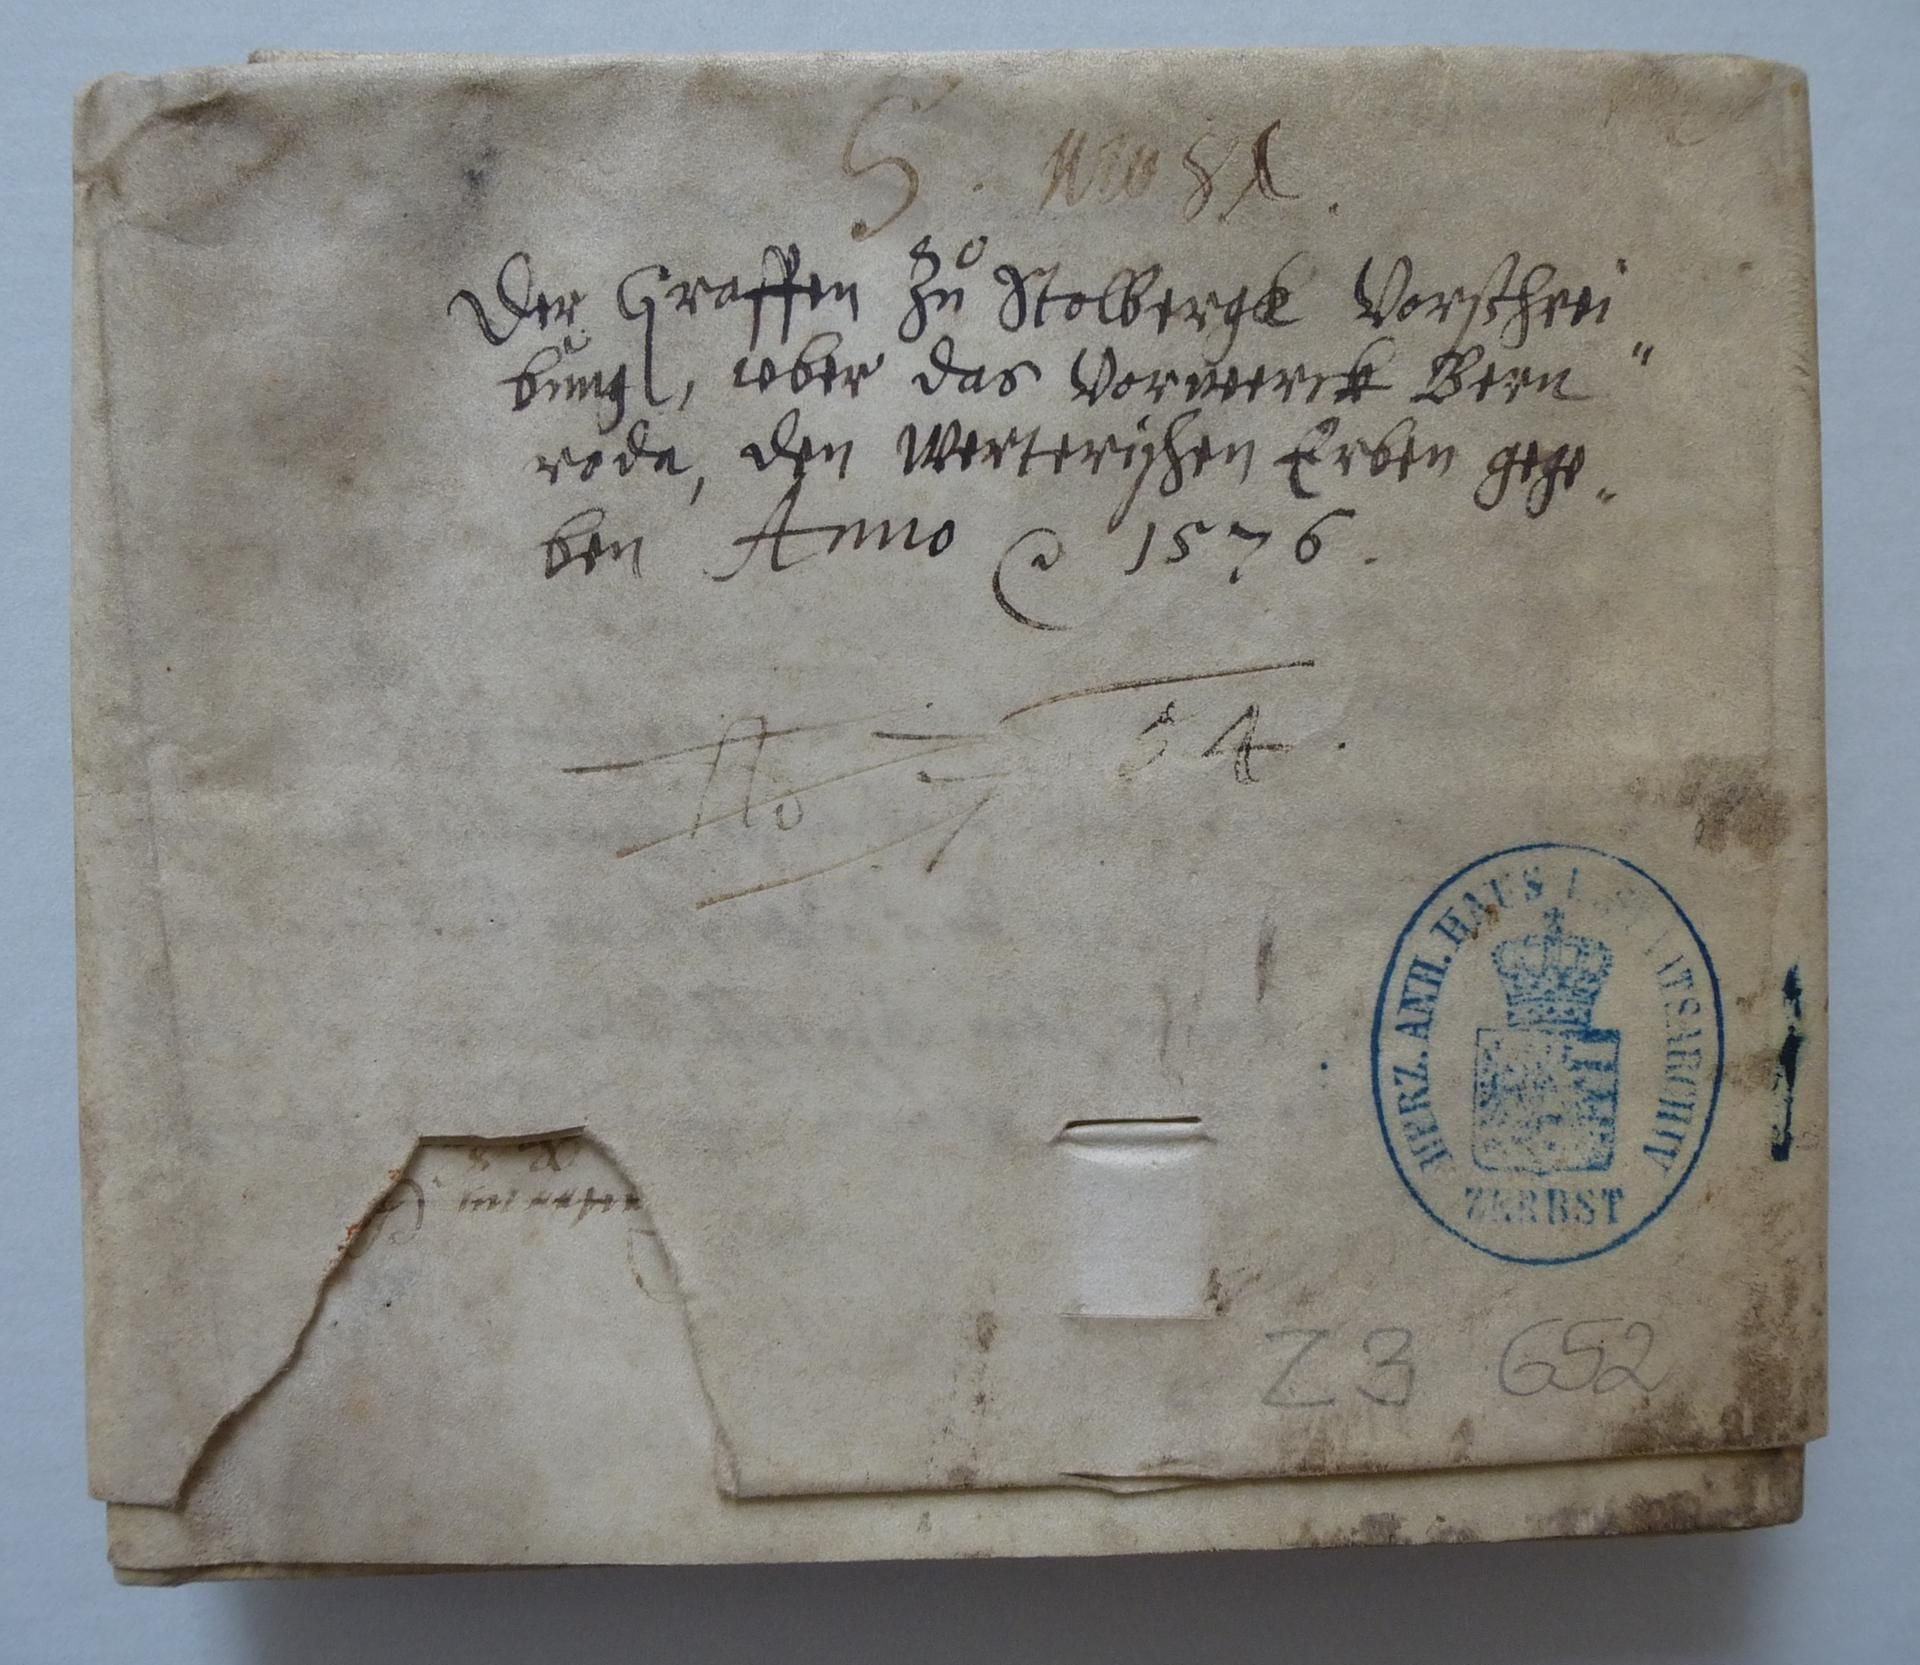 S. Nro 81.
Der Graffen Zu Stolbergk Vorschrei
bung, vber das Vorwerck Bern
roda, den Werterischen Erben gege„
ben Anno 1576.
No 54.
HERZ. ANH. HAUS U. STAATSARCHIV
ZERBST
Z 3 652